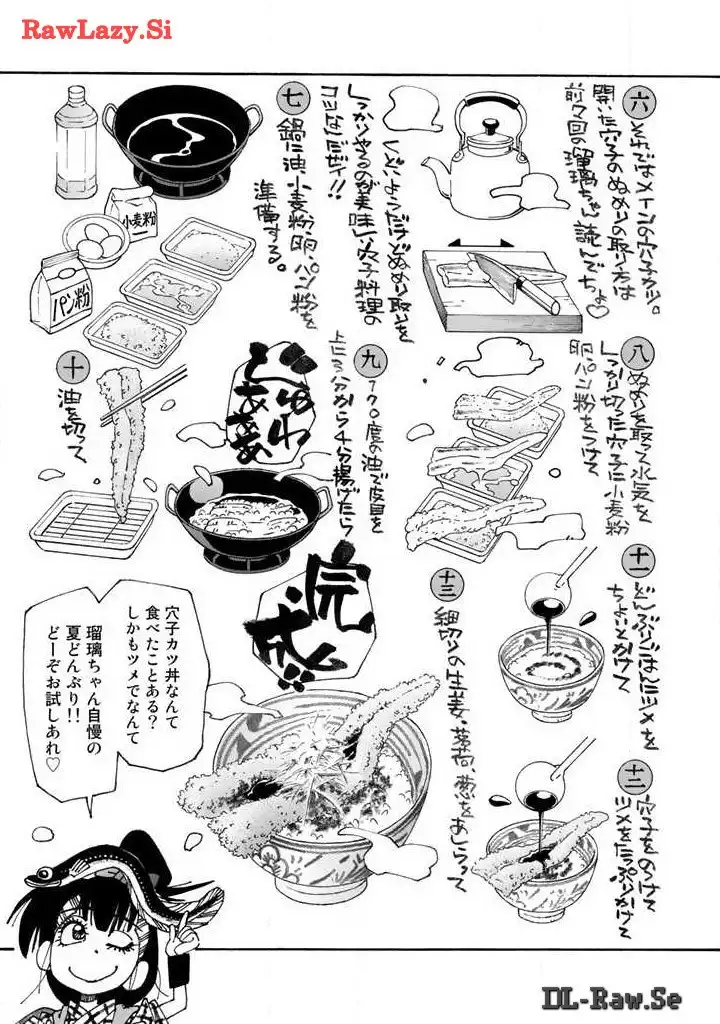 RawLazy.Si
六
それではメーンの穴子カツ。
開いた穴子のぬめりの取り方は
前々回の瑠璃ちゃん読んでちょ♡
しつこいようだけどぬめり取りを
しっかりやるのが美味しい穴子料理の
コツなんだゼィ!!
七
鍋に油、小麦粉、卵、パン粉を
準備する。
小麦粉
パン粉
八
ぬめりを取って水気を
しっかり切った穴子に小麦粉
卵、パン粉をつけて
九
170度の油で皮目を
上に3分から4分揚げたら
じゅわ
あああ
十
油を切って
十一
どんぶりごはんにツメを
ちょいとかけて
十二
穴子をのっけて
ツメをたっぷりかけて
十三
細切りの生姜、茗荷、葱をあしらって
完成!!
穴子カツ丼なんて
食べたことある?
しかもツメでなんて
瑠璃ちゃん自慢の
夏どんぶり!!
どーぞお試しあれ♡
DL-Raw.Se